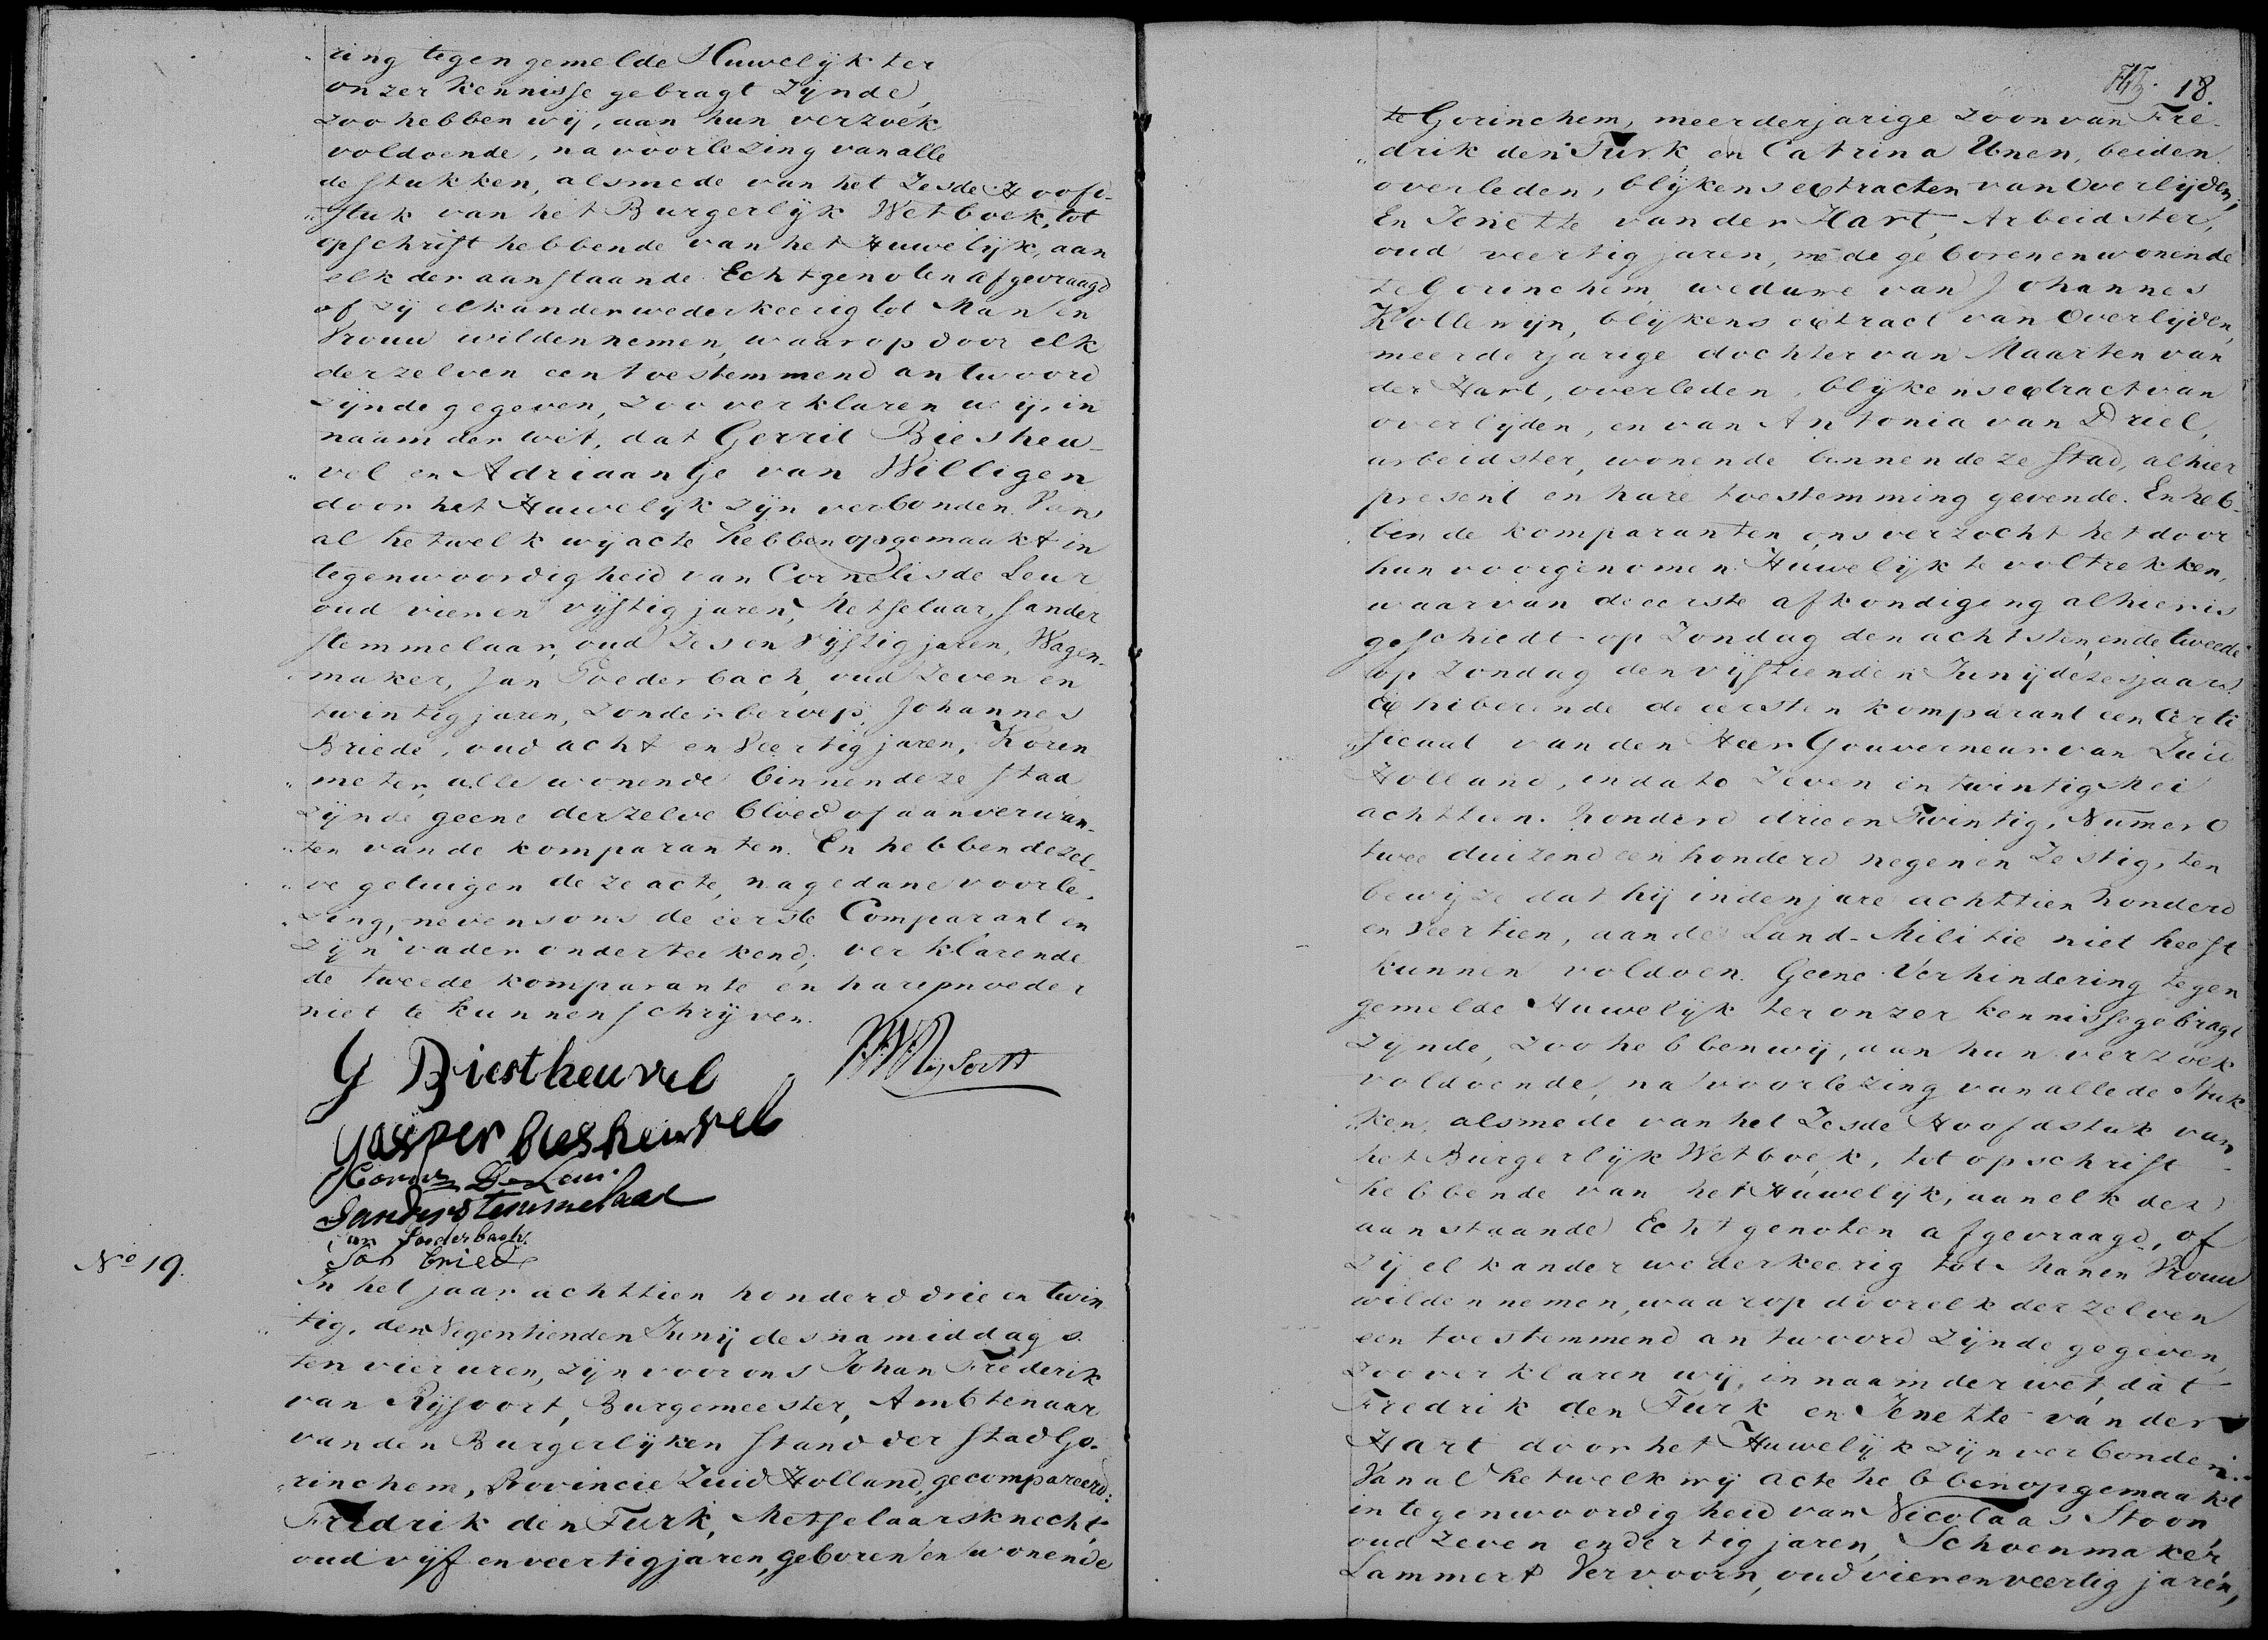 ring tegen gemelde Huwelijk ter
onzer kennisse gebragt Zijnde,
zoo hebben wij, aan hun verzoek
voldoende, na voorlezing van alle
de stukken, alsmede van het Zesde Hoofd-
„stuk van het Burgerlijk Wetboek, tot
opschrift hebbende van het Huwelijk, aan
elk der aanstaande Echtgenoten afgevraagd
of zij elkander wederkeerig tot Man en
Vrouw wilden nemen, waarop door elk
derzelven een toestemmend antwoord
zijnde gegeven, Zoo verklaren wij, in
naam der wet, dat Gerrit Biesheu-
„vel en Adriaantje van Willigen
door het Huwelijk zijn verbonden. Van
al hetwelk wij acte hebben opgemaakt in
tegenwoordigheid van Cornelis de Leur,
oud vier en vijftig jaren, Metselaar, Sander
Stemmelaar, oud Zes en Vijftig jaren, Wagen-
maker, Jan Soederbach, oud Zeven en
twintig jaren, zonder beroep, Johannes
Briede, oud acht en Veertig jaren, Koren-
„meter, alle wonende binnen deze stad
zijnde geene derzelve bloed of aanverwan-
„ten van de komparanten. En hebben dezel-
„ve getuigen deze acte, na gedane voorle-
„zing, nevens ons de eerste Comparant en
zijn vader onderteekend; verklarende
de tweede komparante en hare moeder
niet te kunnen schrijven.
G Biestheuvel
JF v Rijsoort
Jasper biesheuvel
Cornelis De Leur
Sander Stemmelaar
Jan Soederbach
Joh bried
No 19.
In het jaar achttien honderd drie en twin
„tig, den Negentienden Junij des namiddags
ten vier uren, zijn voor ons Johan Frederik
van Rijsoort, Burgemeester, Ambtenaar
van den Burgerlijken Stand der Stad Go-
„rinchem, Provincie Zuid Holland, gecompareerd:
Fredrik den Turk, Metselaarsknecht,
oud vijf en veertig jaren, geboren en wonende
18.
te Gorinchem, meerderjarige zoon van Fre-
„drik den Turk en Catrina Unen, beiden
overleden, blijkens extracten van Overlijden;
En Jenette van der Hart, Arbeidster,
oud veertig jaren, mede geboren en wonende
te Gorinchem, weduwe van Johannes
Kollewijn, blijkens extract van Overlijden,
meerderjarige dochter van Maarten van
der Hart, overleden, blijkens extract van
overlijden, en van Antonia van Driel,
arbeidster, wonende binnen deze stad, alhier
present en hare toestemming gevende. En heb-
ben de komparanten ons verzocht het door
hun voorgenomen Huwelijk te voltrekken,
waarvan de eerste afkondiging alhier is
geschiedt op Zondag den achtsten, en de tweede
op Zondag den vijftienden Junij dezes jaars.
Exhiberende de eersten komparant een Certi
„ficaat van den Heer Gouverneur van Zuid
Holland, in dato Zeven en twintig Mei
achttien honderd drie en Twintig, Numero
twee duizend een honderd negen en Zestig, ten
bewijze dat hij in den jare achttien honderd
en Veertien, aan de Land-Militie niet heeft
kunnen voldoen. Geene Verhindering tegen
gemelde Huwelijk ter onzer kennisse gebragt
zijnde, zoo hebben wij, aan hun verzoek
voldoende, na voorlezing van alle de Stuk
ken, alsmede van het Zesde Hoofdstuk van
het Burgerlijk Wetboek, tot opschrift
hebbende van het Huwelijk, aan elk der
aanstaande Echtgenoten afgevraagd, of
zij elkander wederkeerig tot Man en Vrouw
wilden nemen, waarop door elk derzelven
een toestemmend antwoord zijnde gegeven,
zoo verklaren wij, in naam der wet, dat
Fredrik den Turk en Jenette van der
Hart door het Huwelijk zijn verbonden.
Van al hetwelk wij acte hebben opgemaakt
in tegenwoordigheid van Nicolaas Stoon,
oud Zeven en dertig jaren, Schoenmaker,
Lammert Vervoorn, oud vier en veertig jaren,